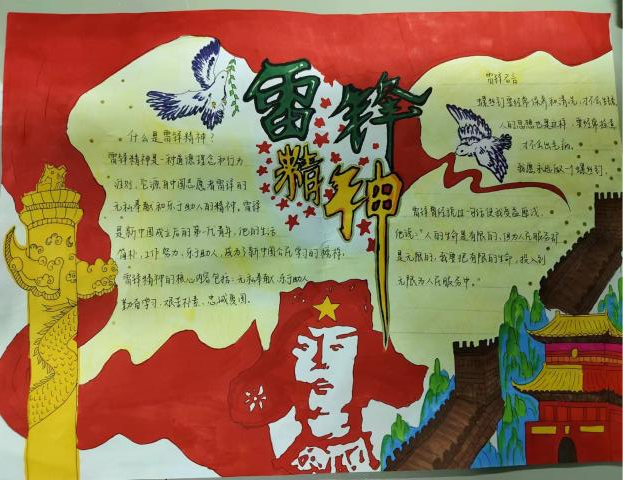 雷锋精神
什么是雷锋精神？
雷锋精神是一种道德理念和行为
准则，它源自中国志愿者雷锋的
无私奉献和乐于助人的精神，雷锋
是新中国成立后的第一代青年，他的生活
简朴，工作努力，乐于助人，成为了新中国公民学习的榜样，
雷锋精神的核心内容包括：无私奉献、乐于助人
勤奋学习、艰苦朴素、忠诚爱国。
雷锋名言
螺丝钉要经常保养和清洗，才不会生锈
人的思想也是这样，要经常检查
才不会出毛病，
我愿永远做一个螺丝钉.
雷锋曾经说过一句话使我受益匪浅，
他说："人的生命是有限的，但为人民服务却
是无限的，我要把有限的生命，投入到
无限为人民服务中。"